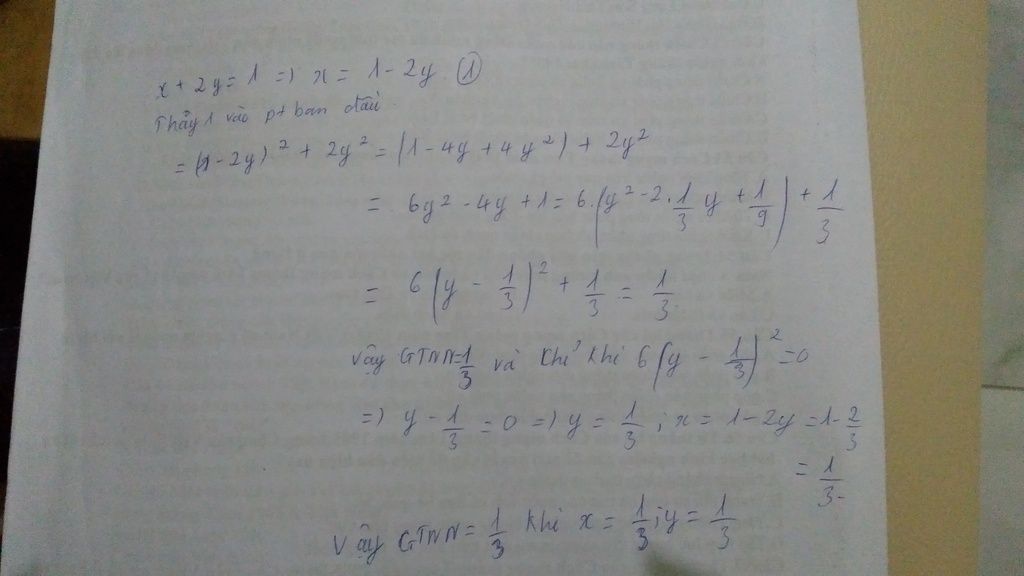 x + 2y = 1 => x = 1 - 2y. ①
Thay 1 vào pt ban đầu.
= (1 - 2y)² + 2y² = (1 - 4y + 4y²) + 2y²
= 6y² - 4y + 1 = 6.(y² - 2.1/3 y + 1/9) + 1/3
= 6(y - 1/3)² + 1/3 = 1/3.
Vậy GTNN=1/3 và khi khi 6(y - 1/3)² = 0
=> y - 1/3 = 0 => y = 1/3 ; x = 1 - 2y = 1 - 2/3
= 1/3.
Vậy GTNN = 1/3 khi x = 1/3 ; y = 1/3